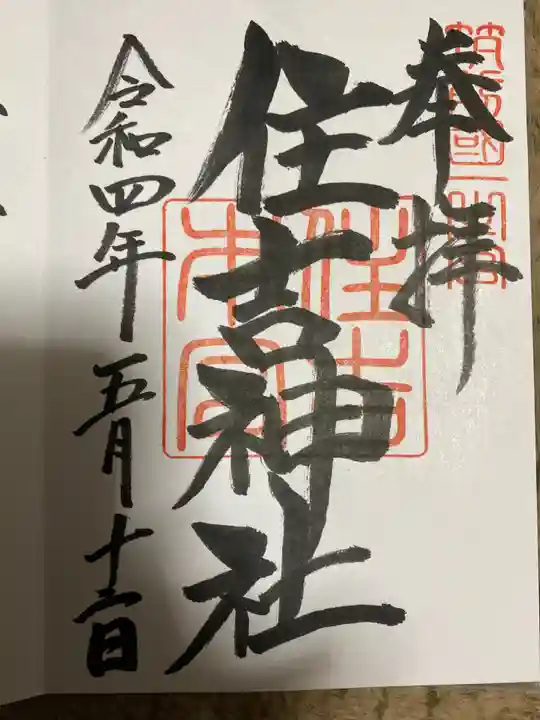 筑前國一之宮
奉拝
住吉神社
住吉本宮
令和四年五月十二日